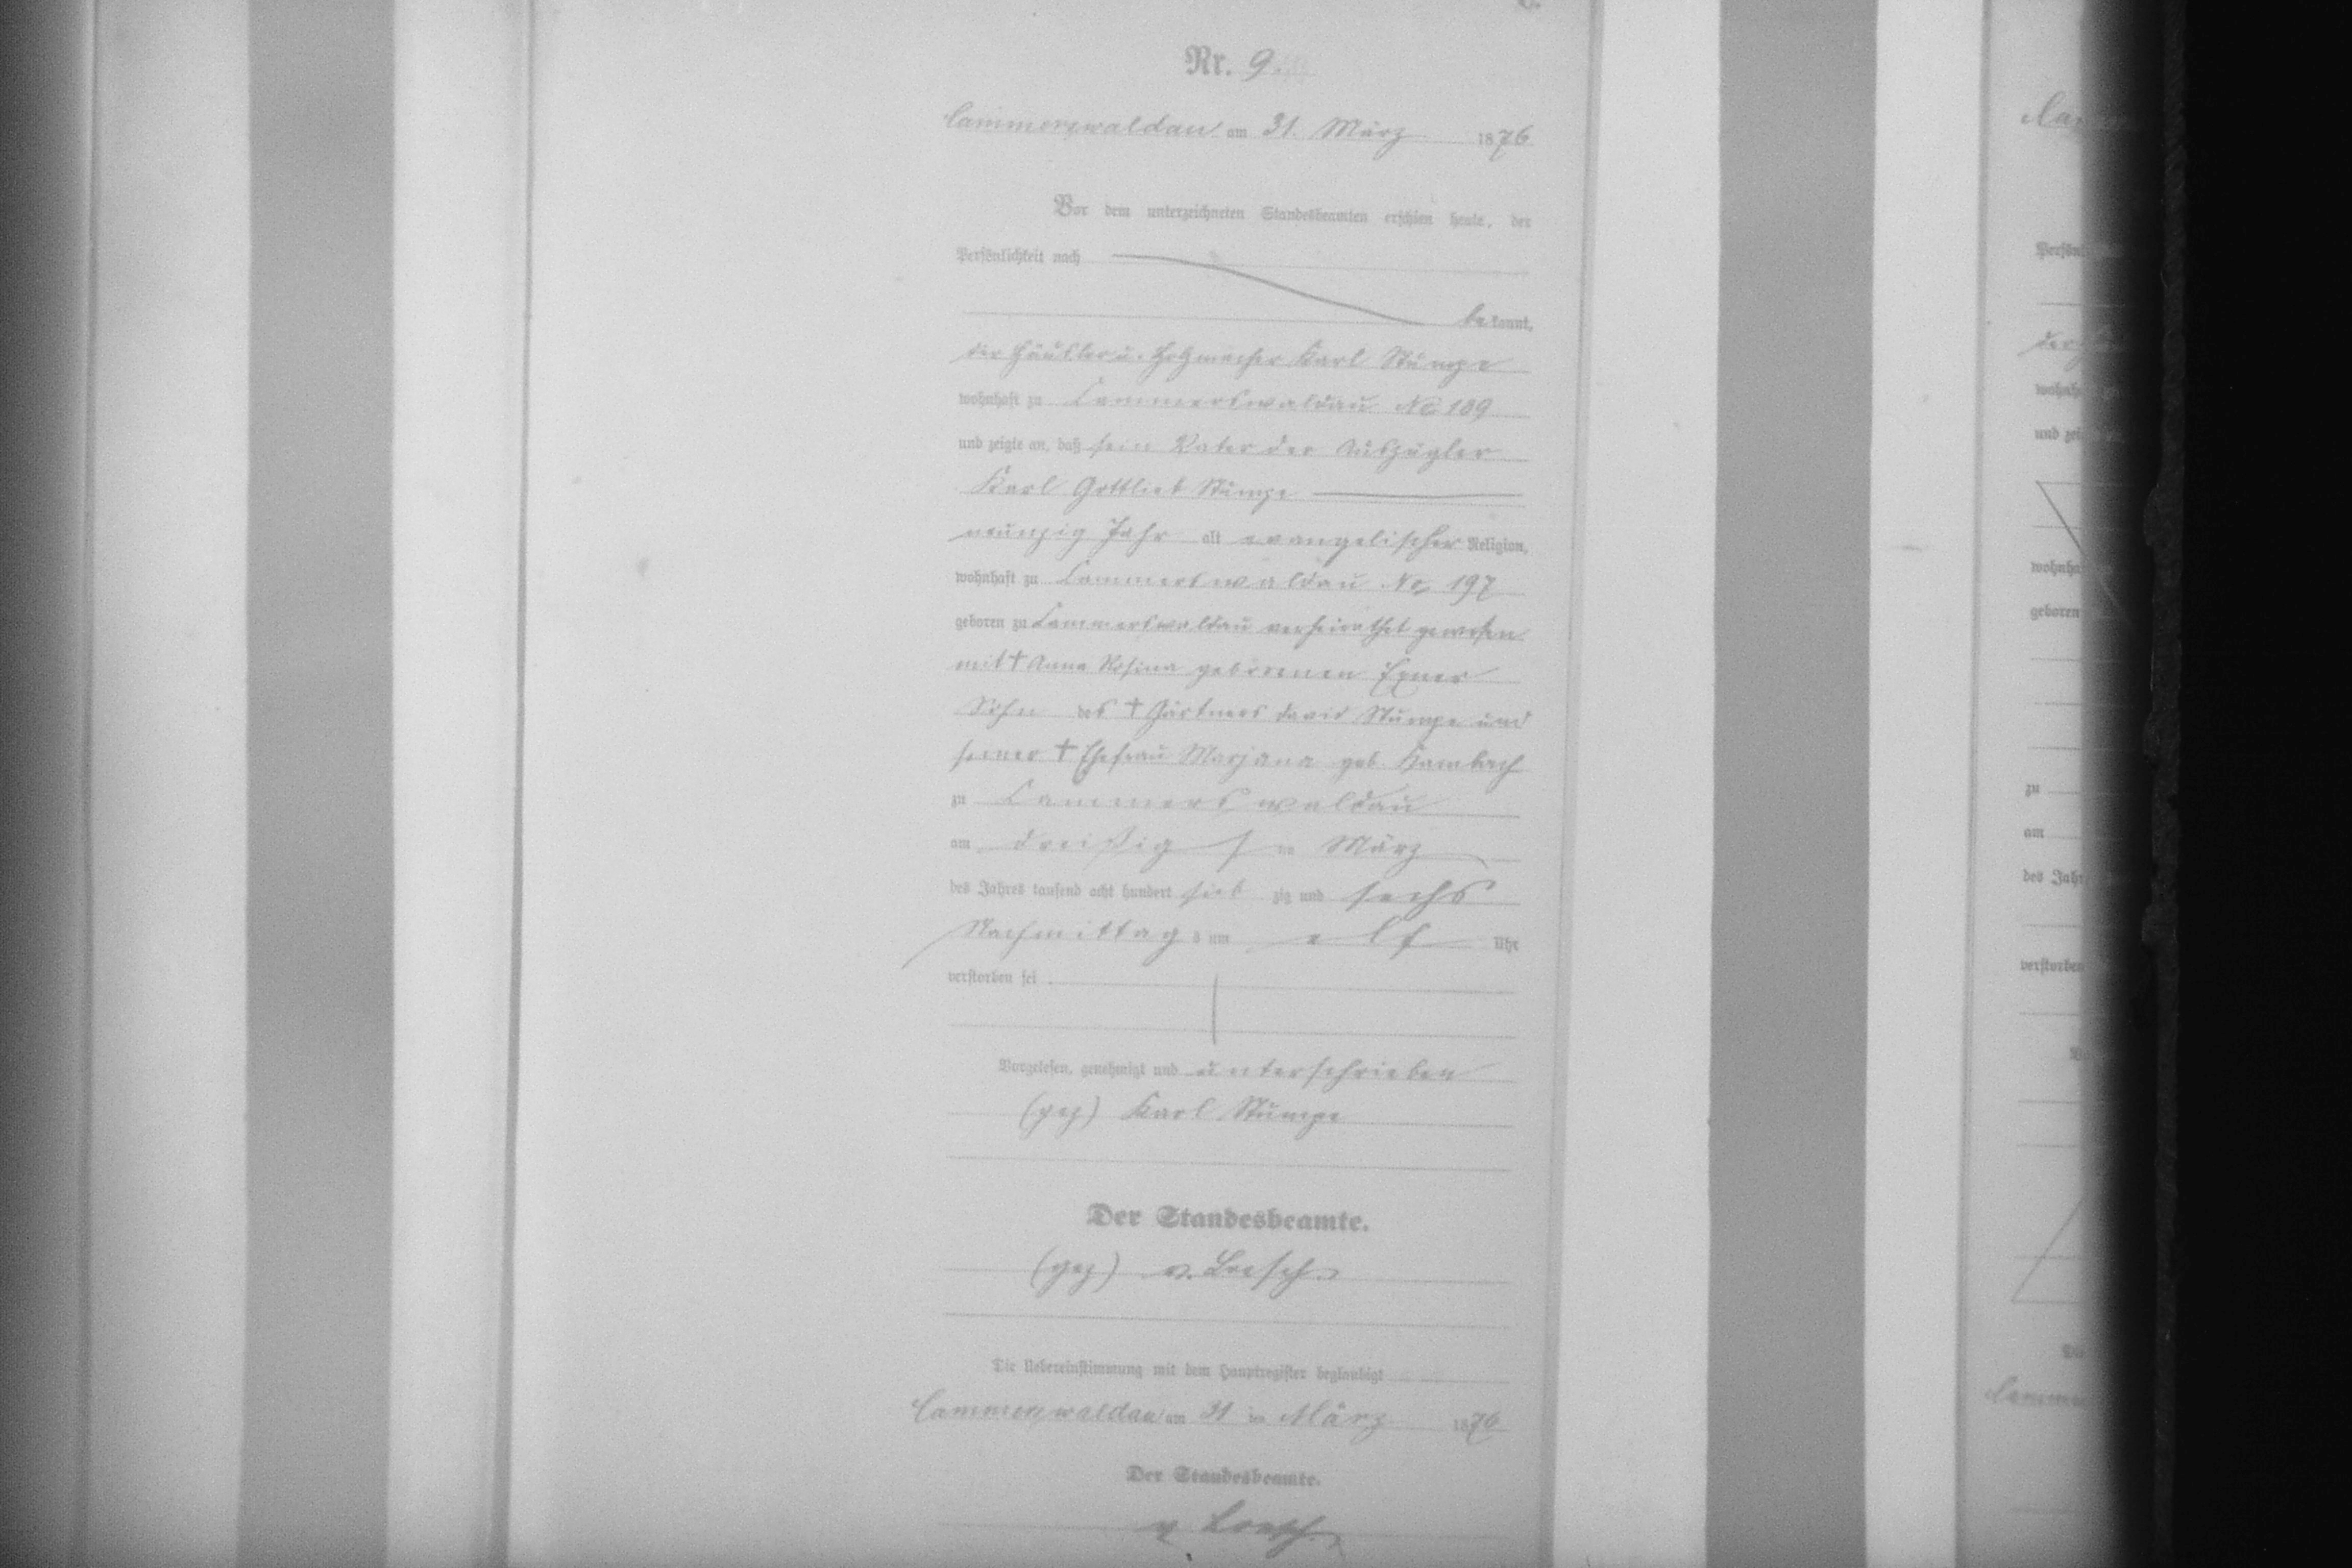 Nr. 9.
Cammerswaldau am 31. März 1876
Vor dem unterzeichneten Standesbeamten erschien heute, der
Persönlichkeit nach
bekannt,
der Häusler u. Holzmacher Karl Stumpe
wohnhaft zu Cammerswaldau No 109
und zeigte an, daß sein Vater der Auszügler
Karl Gottlieb Stumpe
neunzig Jahr alt evangelischer Religion,
wohnhaft zu Cammerswaldau No. 197
geboren zu Cammerswaldau verheirathet gewesen
mit † Anna Rosina geborenen Exner
Sohn des † Gärtners David Stumpe und
seiner † Ehefrau Marjana geb. Hambach
zu Cammerswaldau
am dreißigsten März
des Jahres tausend acht hundert siebzig und sechs
Nachmittags um elf Uhr
verstorben sei
Vorgelesen, genehmigt und unterschrieben
(gez) Karl Stumpe
Der Standesbeamte.
(gez) v. Loesch.
Die Uebereinstimmung mit dem Hauptregister beglaubigt
Cammerswaldau am 31 ten März 1876
Der Standesbeamte.
v. Loesch.